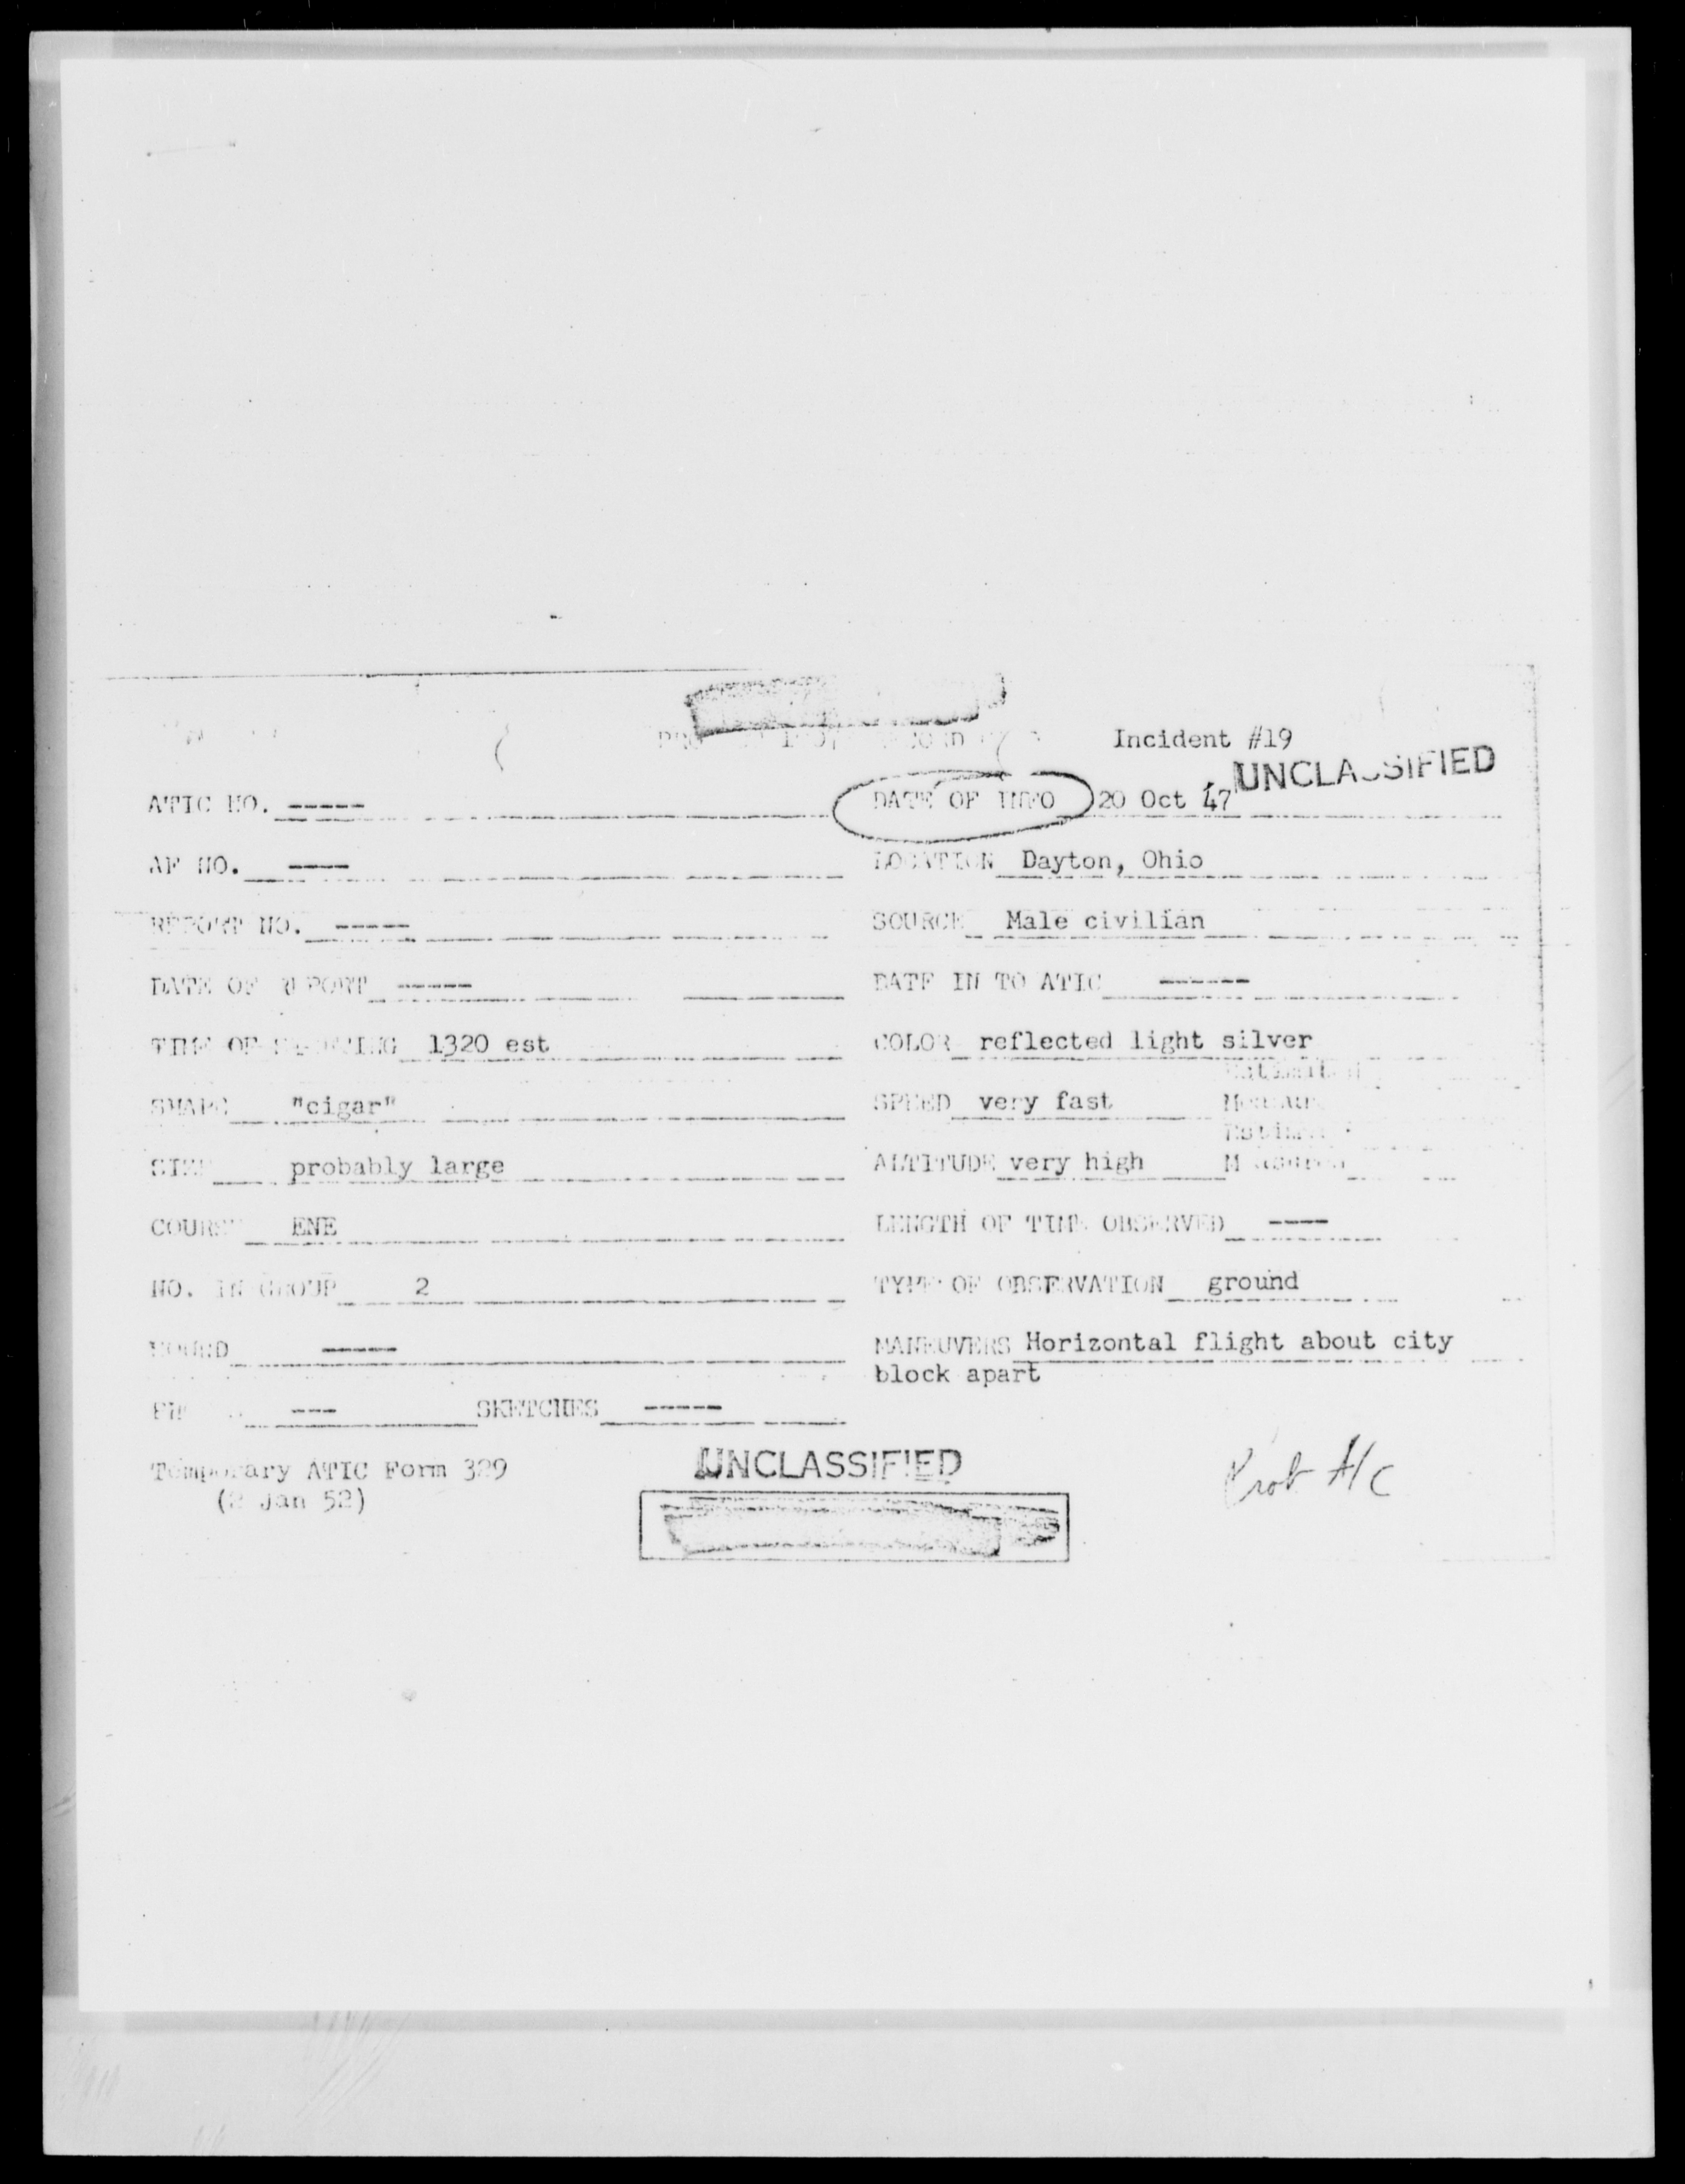 Incident #19
UNCLASSIFIED
ATIC NO. ----- DATE OF INFO 20 Oct 47
AF NO. ---- LOCATION Dayton, Ohio
REPORT NO. ----- SOURCE Male civilian
DATE OF REPORT ----- DATE IN TO ATIC ------
TIME OF SIGHTING 1320 est COLOR reflected light silver
SHAPE "cigar" SPEED very fast
SIZE probably large ALTITUDE very high
COURSE ENE LENGTH OF TIME OBSERVED ----
NO. IN GROUP 2 TYPE OF OBSERVATION ground
SOUND ----- MANEUVERS Horizontal flight about city
block apart
--- SKETCHES -----
Temporary ATIC Form 329 UNCLASSIFIED
(2 Jan 52)
Prob A/C